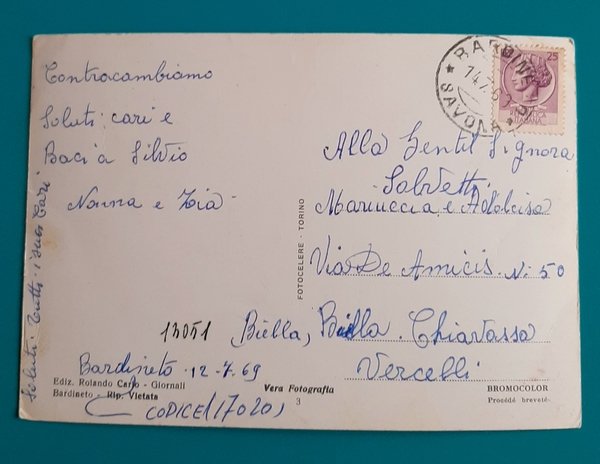 Contraccambiamo
Saluti cari e
Baci a Silvio
Nonna e Zia
Saluti Tutti i suoi Cari
Bardineto 12-7-69
CODICE (17020)
Ediz. Rolando Carlo - Giornali
Bardineto - Rip. Vietata
Vera Fotografia
3
FOTOCELERE - TORINO
BARDINETO
14.7.69
SAVONA
25
ITALIANA
Alla Gentil Signora
Mariuccia e Adalcisa
Via De Amicis. N. 50
13051 Biella, Biella. Chiavazza
Vercelli
BROMOCOLOR
Procédé breveté